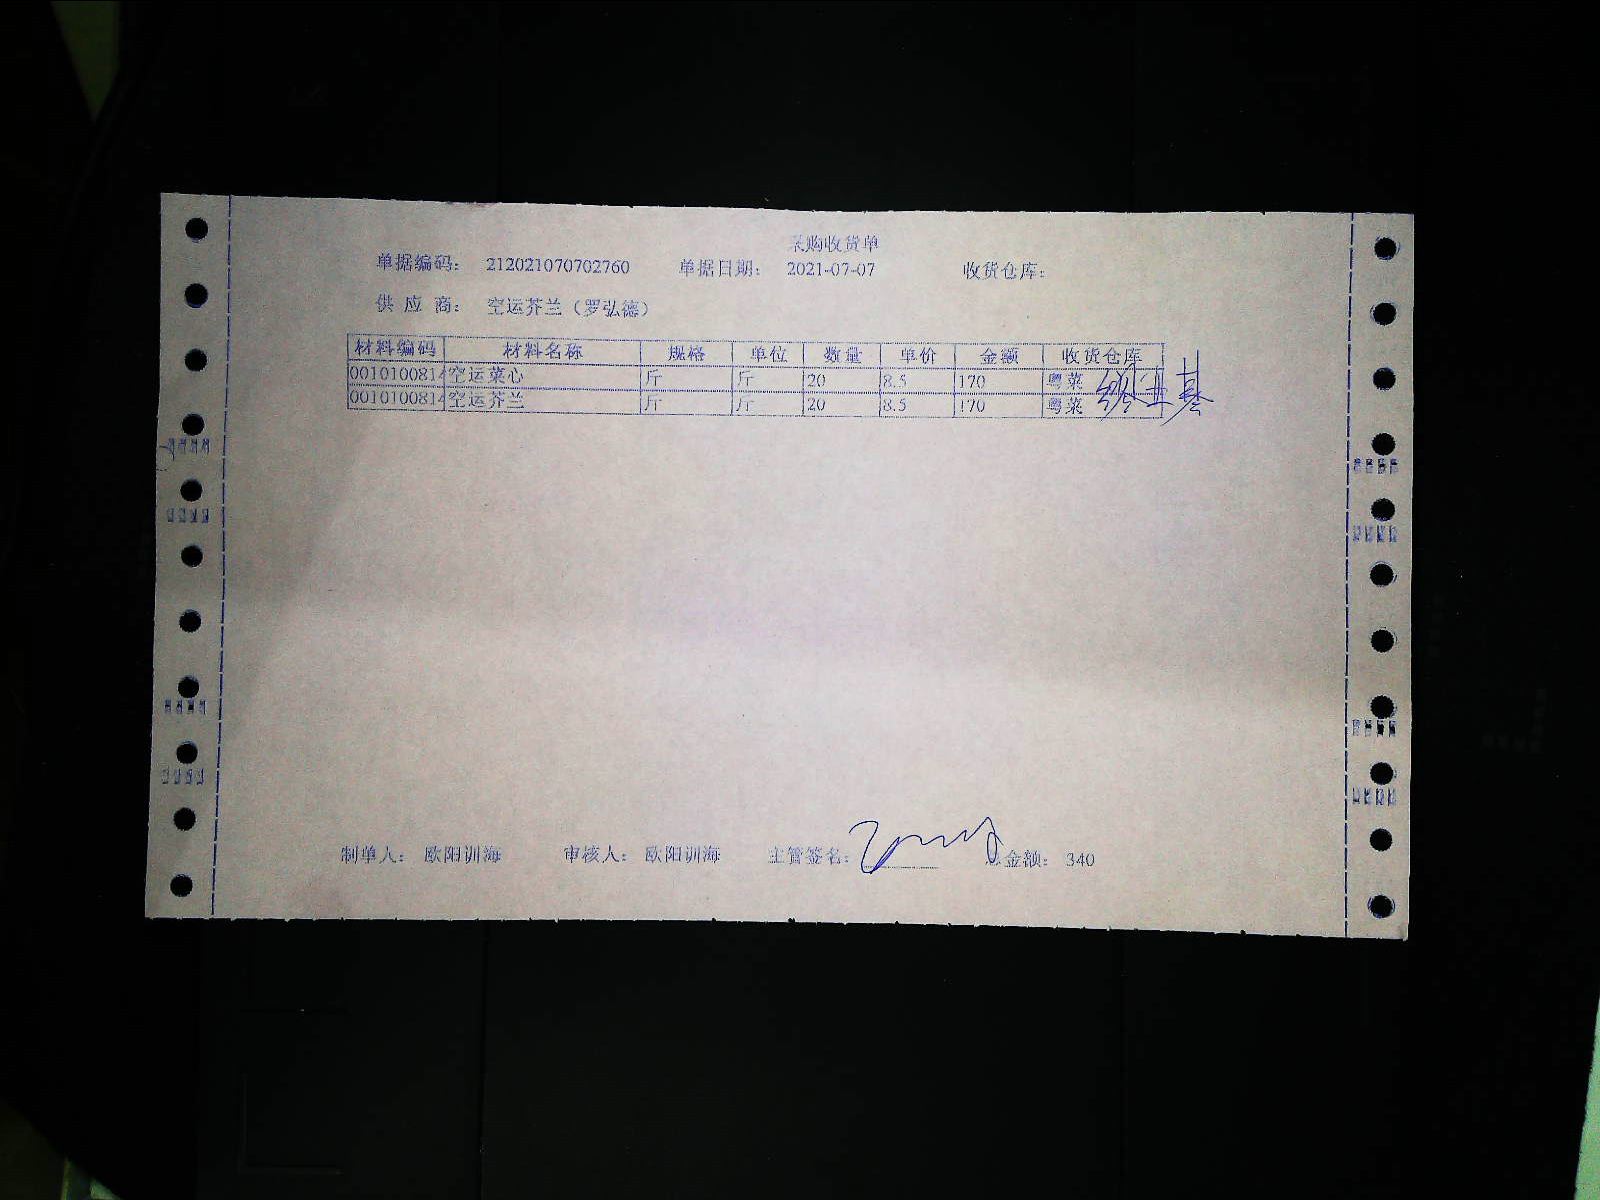 采购收货单
单据编码： 212021070702760 单据日期： 2021-07-07 收货仓库：
供 应 商： 空运芥兰（罗弘德）
材料编码 材料名称 规格 单位 数量 单价 金额 收货仓库
0010100814 空运菜心 斤 斤 20 8.5 170 粤菜
0010100814 空运芥兰 斤 斤 20 8.5 170 粤菜
制单人： 欧阳训海 审核人： 欧阳训海 主管签名： 总金额： 340